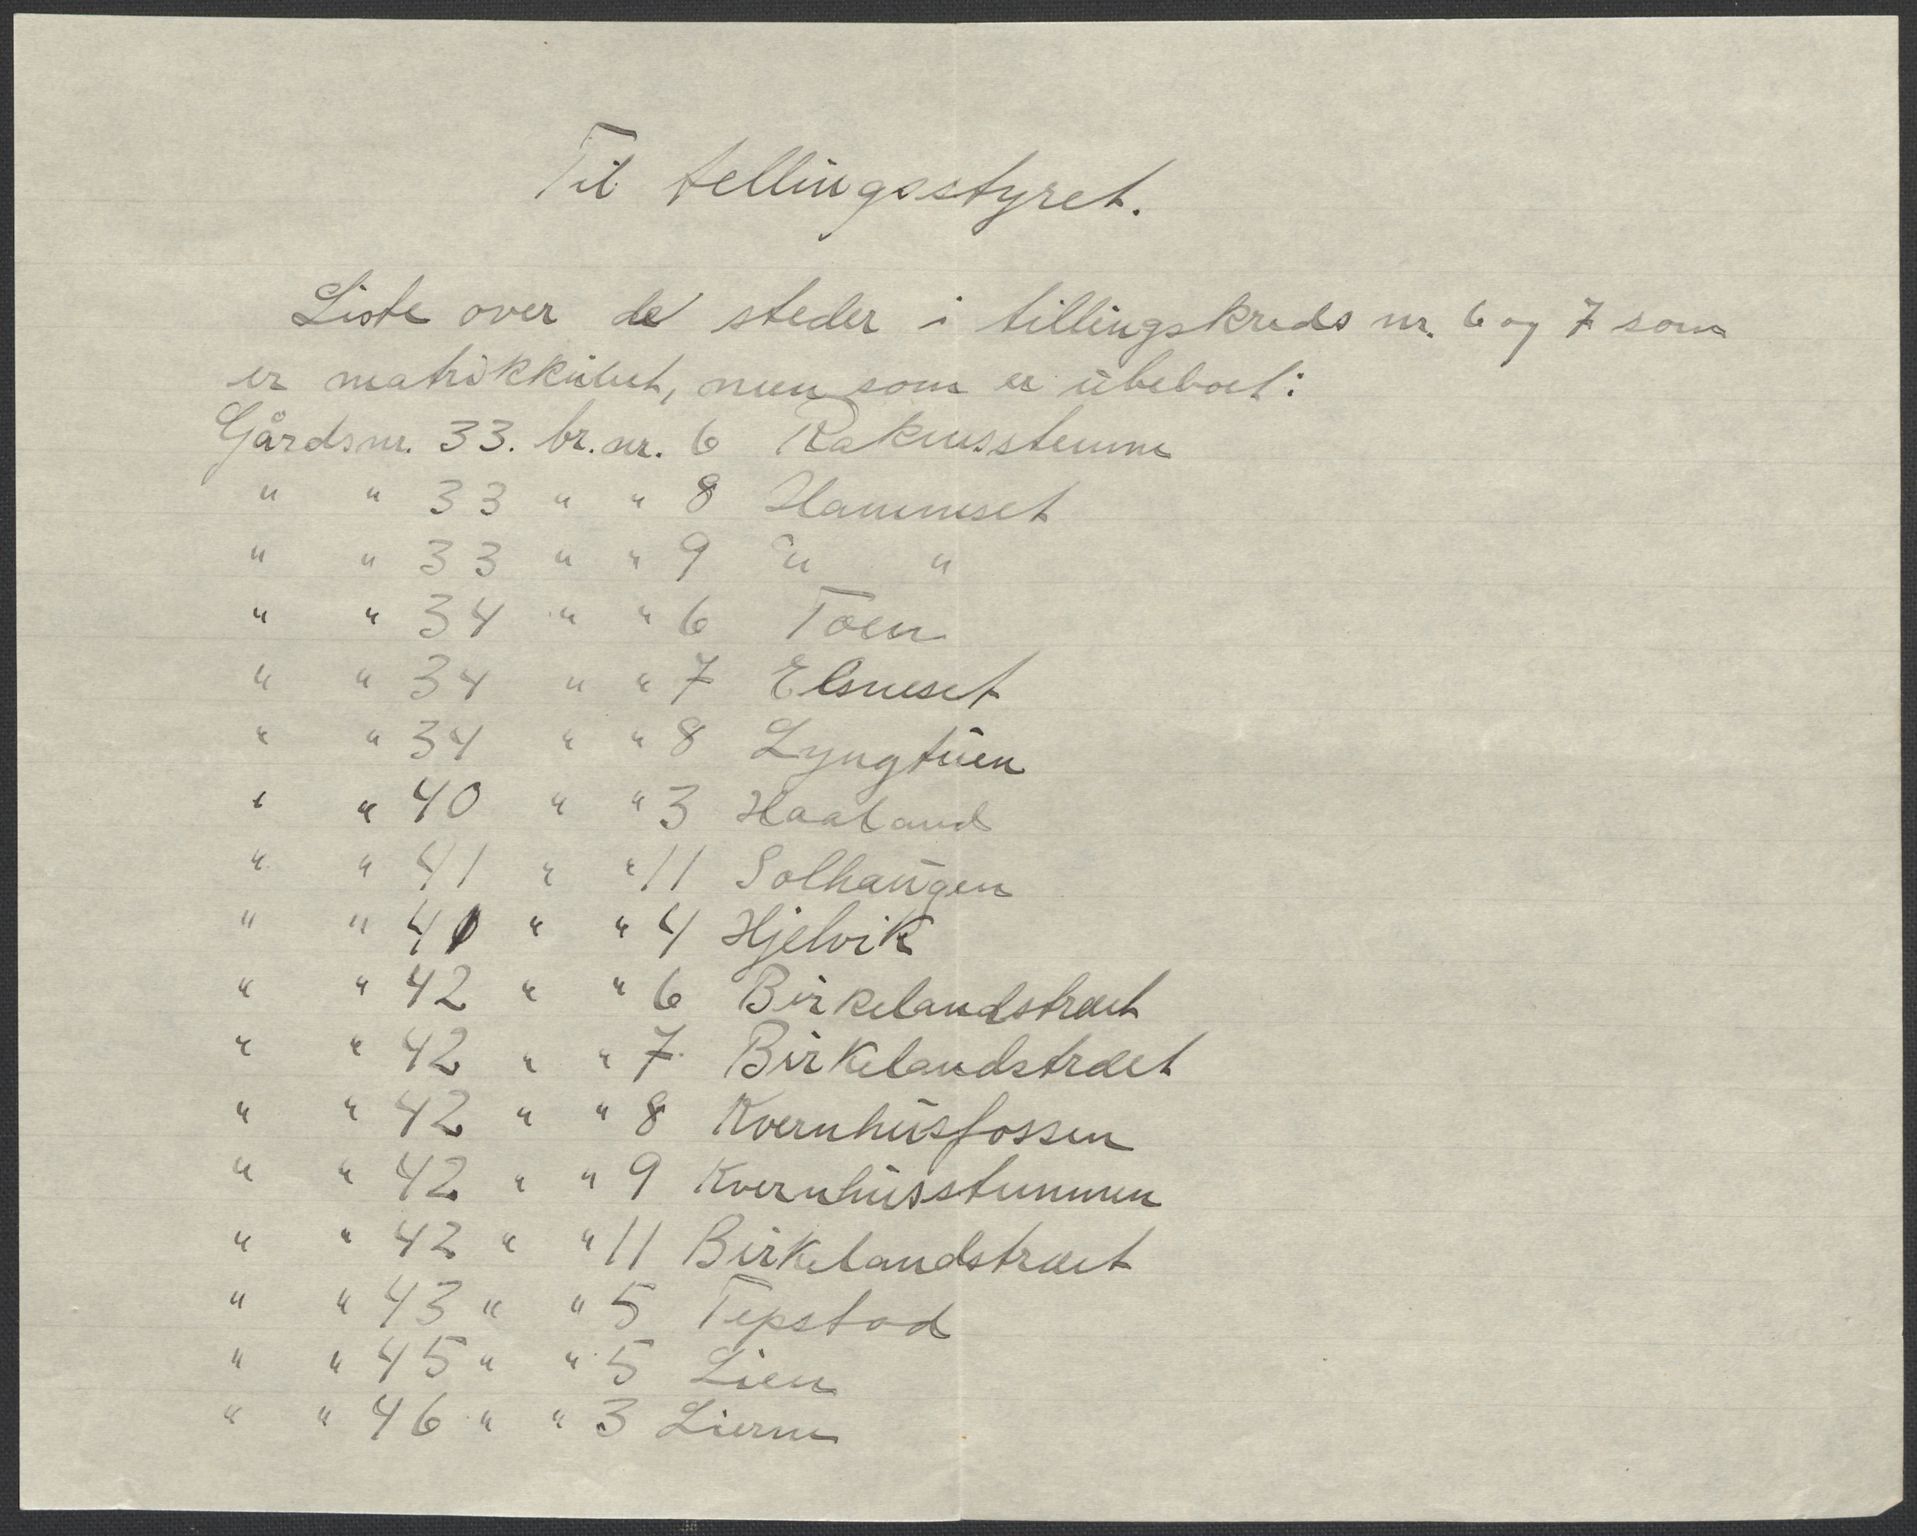 Til tellingsstyret.
Liste over de steder i tellingskreds nr. 6 og 7 som
er matrikkulert, men som er ubeboet:
Gårdsnr. 33. br. nr. 6 Raknesstemne
" " 33 " " 8 Hamneset
" " 33 " " 9 " "
" " 34 " " 6 Toen
" " 34 " " 7 Elsneset
" " 34 " " 8 Lyngtuen
" " 40 " " 3 Haaland
" " 41 " " 11 Solhaugen
" " 41 " " 4 Hjelvik
" " 42 " " 6 Birkelandstræet
" " 42 " " 7 Birkelandstræet
" " 42 " " 8 Kvernhusfossen
" " 42 " " 9 Kvernhusstemmen
" " 42 " " 11 Birkelandstræet
" " 43 " " 5 Tepstad
" " 45 " " 5 Lien
" " 46 " " 3 Lierne